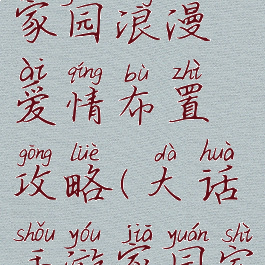 家园浪漫
ài qíng bù zhì
爱情布置
gōng lüè dà huà
攻略(大话
shǒu yóu jiā yuán shì
手游家园室